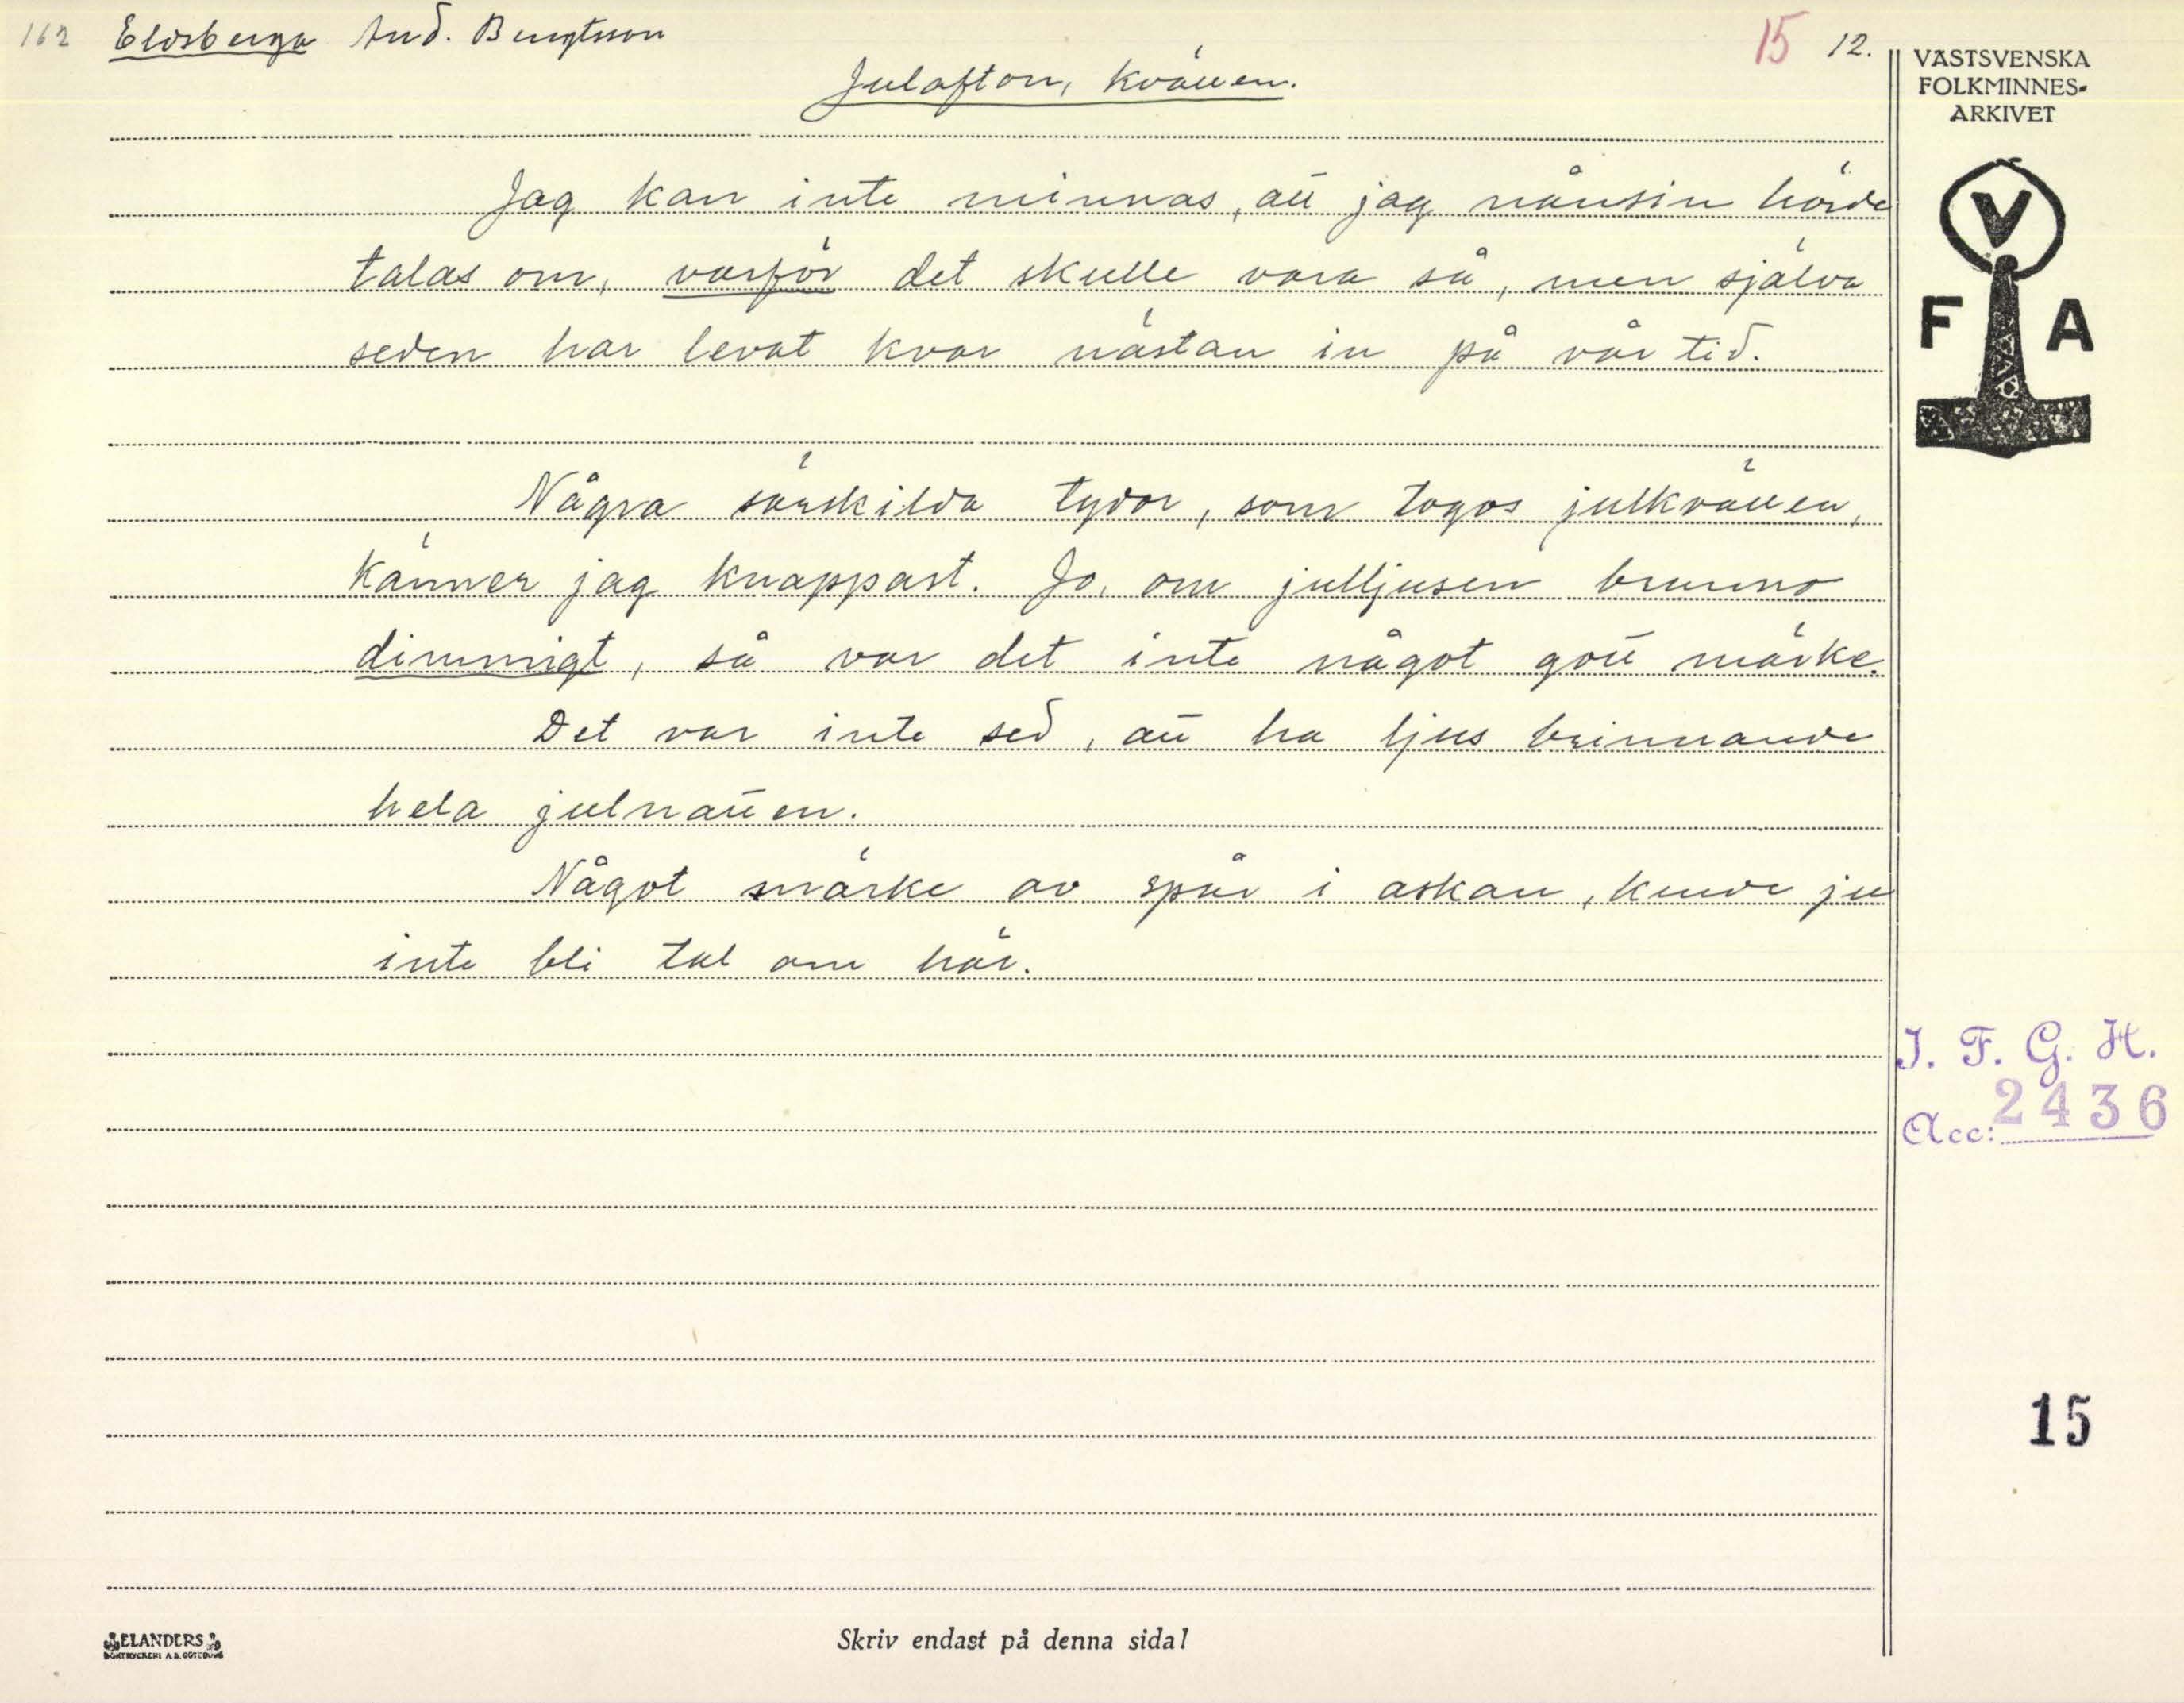 162 Eldsberga And. Bengtsson 15 12.
Julafton, kvällen.
Jag kan inte minnas, att jag nånsin hörde
talas om, varför det skulle vara så, men själva
seden har levat kvar nästan in på vår tid.
Några särskilda tydor, som togos julkvällen,
känner jag knappast. Jo, om julljusen brunno
dimmigt, så var det inte något gott märke.
Det var inte sed, att ha ljus brinnande
hela julnatten.
Något märke av spår i askan, kunde ju
inte bli tal om här.
VÄSTSVENSKA
FOLKMINNES-
ARKIVET
V
F A
I. F. G. H.
Acc: 2436
15
ELANDERS
BOKTRYCKERI A.B. GÖTEBORG
Skriv endast på denna sida!